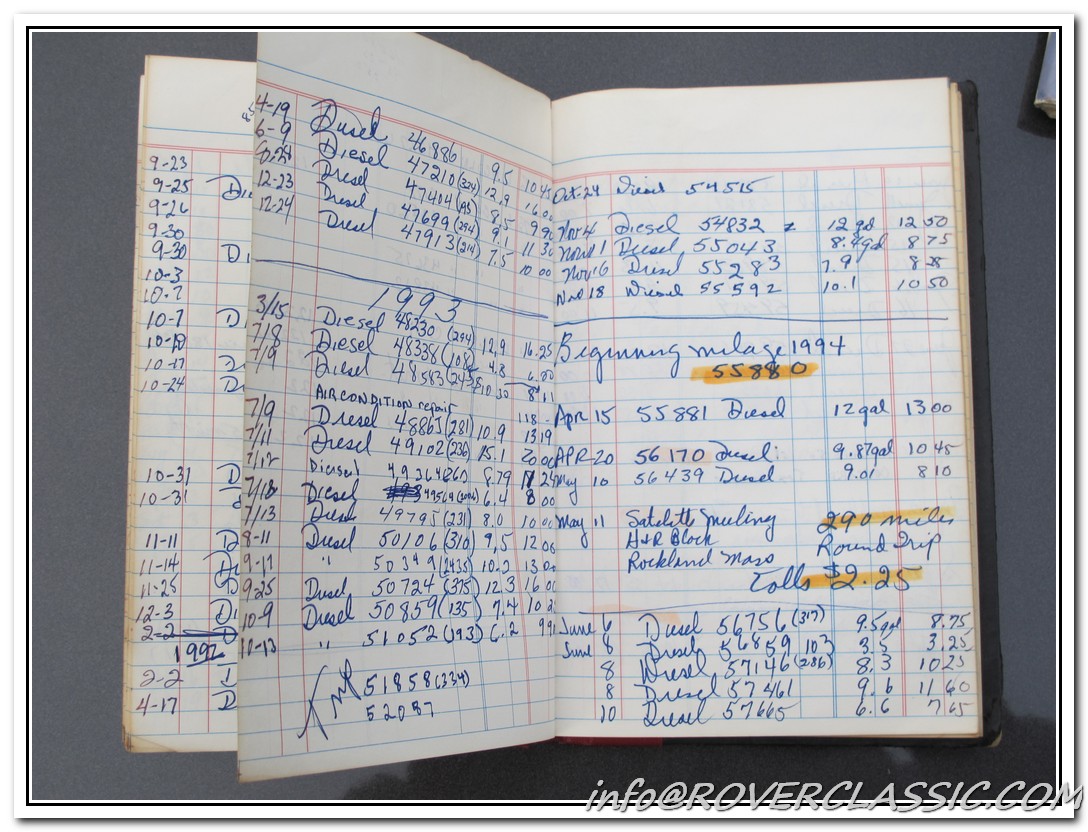 9-23
9-25 Di
9-26
9-30
9-30 Di
10-3
10-7
10-7 D
10-18
10-17 D
10-24 D
10-31 D
10-31
11-11 D
11-14 D
11-25 D
12-3 Di
2-2 D
1992
2-2
4-17 D
4-19 Diesel 46886 9.5 10 45
6-9 Diesel 47210 (324) 12.9 16 00
8-28 Diesel 47404 8.5 9 90
12-23 Diesel 47699 (294) 9.1 11 30
12-24 Diesel 47913 (214) 7.5 10 00
1993
3/15 Diesel 48230 (294) 12.9 16.25
7/8 Diesel 48338 (108) 4.8 6.00
7/9 Diesel 48583 (245) 8 11
AIR CONDITION repair 118 -
7/9 Diesel 48863 (281) 10.9 13 19
7/11 Diesel 49102 (236) 15.1 20 00
7/12 Diesel 49364 8.79 11 24
7/12 Diesel 49569 6.4 8 00
7/13 Diesel 49795 (231) 8.0 10 00
8-11 Diesel 50106 (310) 9.5 12 00
9-17 " 50349 (2435) 10.2 13 00
9-25 Diesel 50724 (375) 12.3 16 00
10-9 Diesel 50859 (135) 7.4 10 2
10-13 " 51052 (193) 6.2 9 91
51858 (334)
52087
Oct-24 Diesel 54515
Nov 4 Diesel 54832 12 gal 12 50
Nov 11 Diesel 55043 8.4 gal 8 75
Nov 16 Diesel 55283 7.9 8 25
Nov 18 Diesel 55592 10.1 10 50
Beginning milage 1994
55880
Apr 15 55881 Diesel 12 gal 13 00
APR-20 56170 Diesel 9.87 gal 10 45
May 10 56439 Diesel 9.01 8 10
May 11 Satelette Meeting 290 miles
H+R Block Round Trip
Rockland Mass
Tolls $2.25
June 6 Diesel 56756 (317) 9.5 gal 8.75
June 8 Diesel 56859 103 3.5 3.25
8 Diesel 57146 (286) 8.3 10 25
8 Diesel 57461 9.6 11 60
10 Diesel 57665 6.6 7 65
info@ROVERCLASSIC.COM